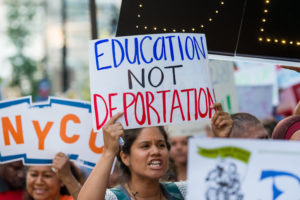 EDUCATION
NOT
DEPORTATION
NYC